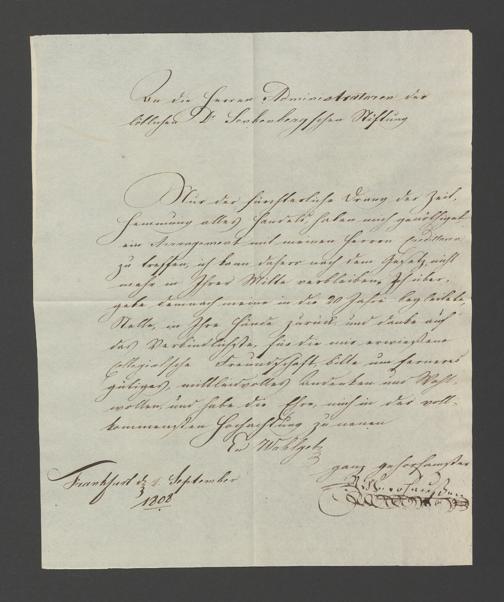 An die Herren Administratoren der
löblichen Dr Senkenbergschen Stiftung
Nur der fürchterliche Drang der Zeit,
Hemmung alles Handels, haben mich genöthiget
ein Arrangement mit meinen Herren Creditoren
zu treffen, ich kann daher nach dem Gesetz nicht
mehr in Ihrer Mitte verbleiben, Ich über-
gebe demnach meine in die 20 Jahre
Stelle, in Ihre Hände zurück und danke auf
das Verbindlichste, für die mir erwiesene
Collegialische Freundschaft, bitte um ferneres
gütiges, mittleidvolles andenken und Wohl-
wollen, und habe die Ehre, mich in der voll-
kommensten Hochachtung zu nennen
Ew Wohlgeb
ganz gehorsamster
Frankfurt d September
1808